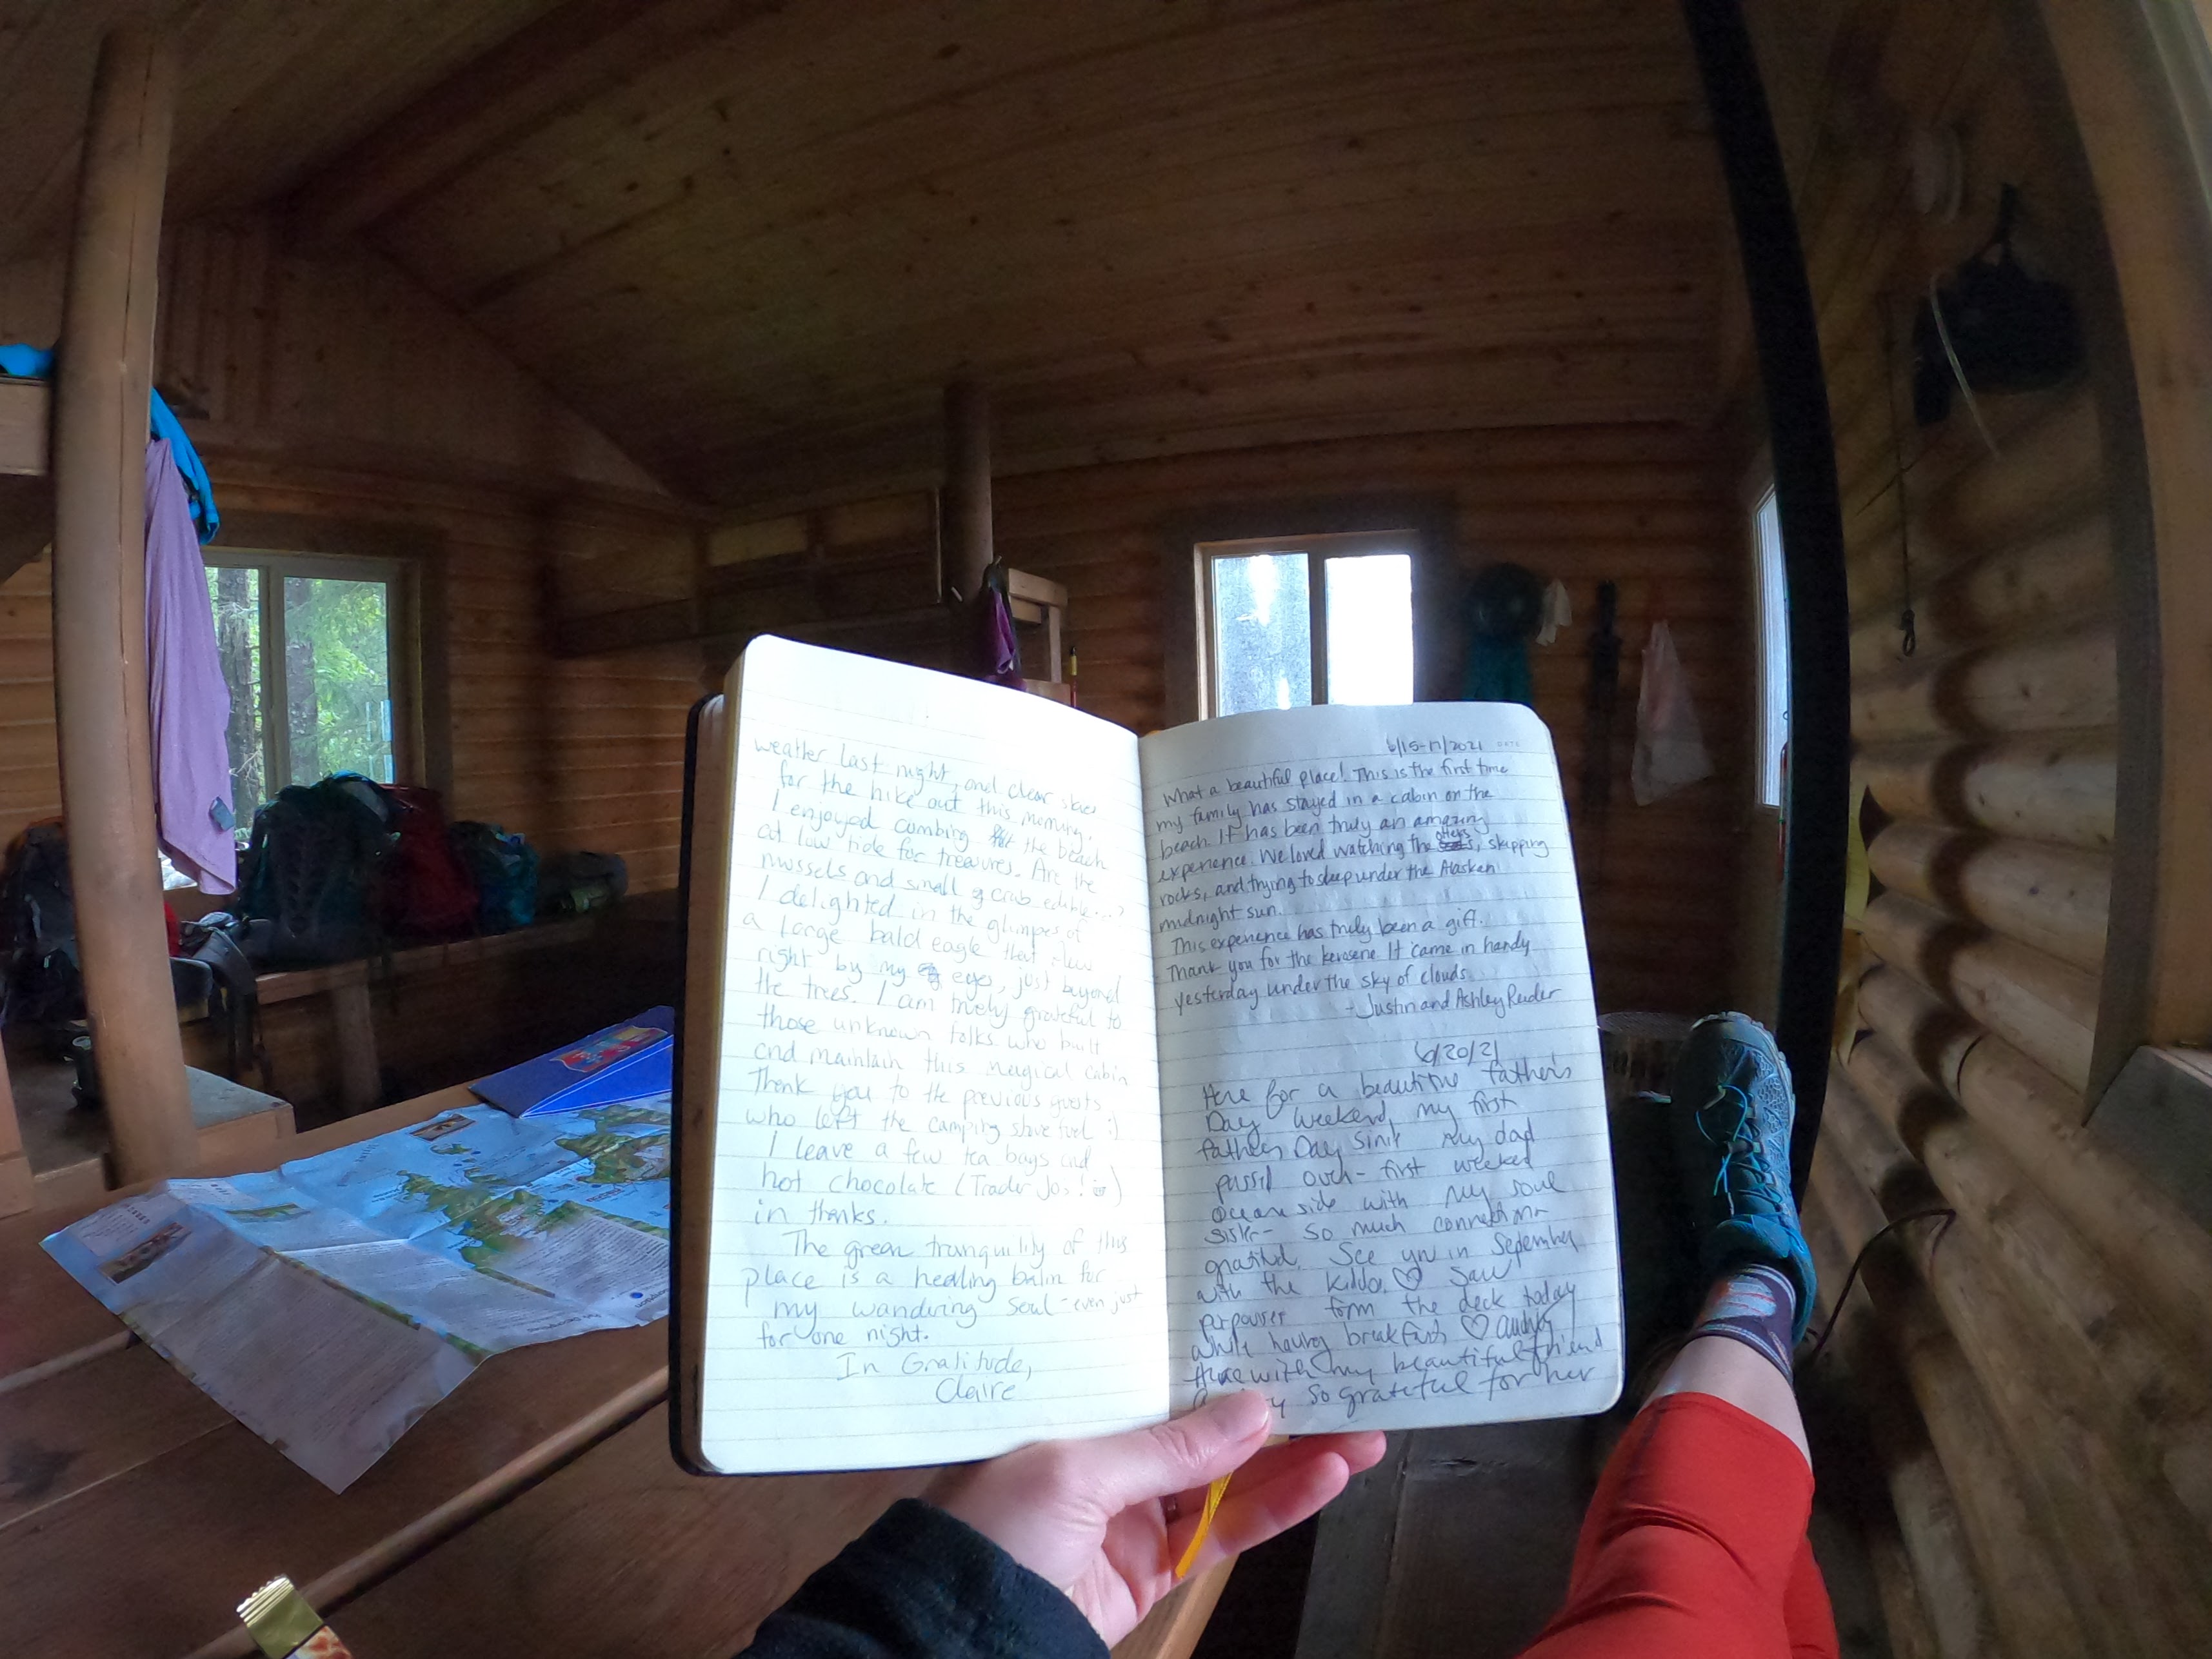 weather last night, and clear skies
for the hike out this morning.
I enjoyed combing the beach
at low tide for treasures. Are the
mussels and small crab edible...?
I delighted in the glimpses of
a large bald eagle that flew
right by my eyes, just beyond
the trees. I am truely grateful to
those unknown folks who built
and maintain this magical cabin
Thank you to the previous guests
who left the camping stove fuel :)
I leave a few tea bags and
hot chocolate (Trader Jos!)
in thanks.
The green tranquility of this
place is a healing balm for
my wandering soul - even just
for one night.
In Gratitude,
Claire
6/15-17/2021 DATE
What a beautiful place! This is the first time
my family has stayed in a cabin on the
beach. It has been truly an amazing
experience. We loved watching the otters, skipping
rocks, and trying to sleep under the Alaskan
midnight sun.
This experience has truly been a gift.
Thank you for the kerosene. It came in handy
yesterday under the sky of clouds.
- Justin and Ashley Reider
6/20/21
Here for a beautiful father's
Day weekend, my first
fathers Day since my dad
passed over - first weekend
ocean side with my soul
sister - so much connection
gratitude. See you in September
with the kiddos ♡ Saw
porpouses form the deck today
while having breakfast ♡
Here with my beautiful friend
so grateful for her